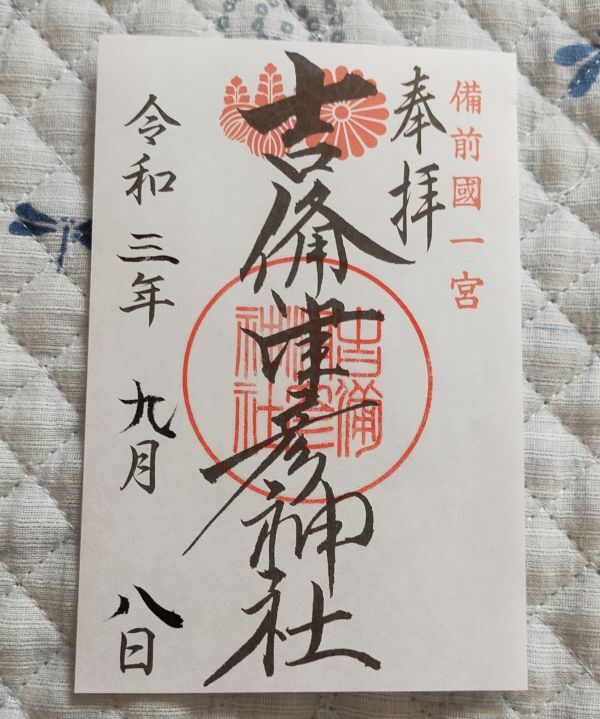 備前國一宮
奉拝
吉備津彦神社
吉備
津彦
神社
令和三年九月八日